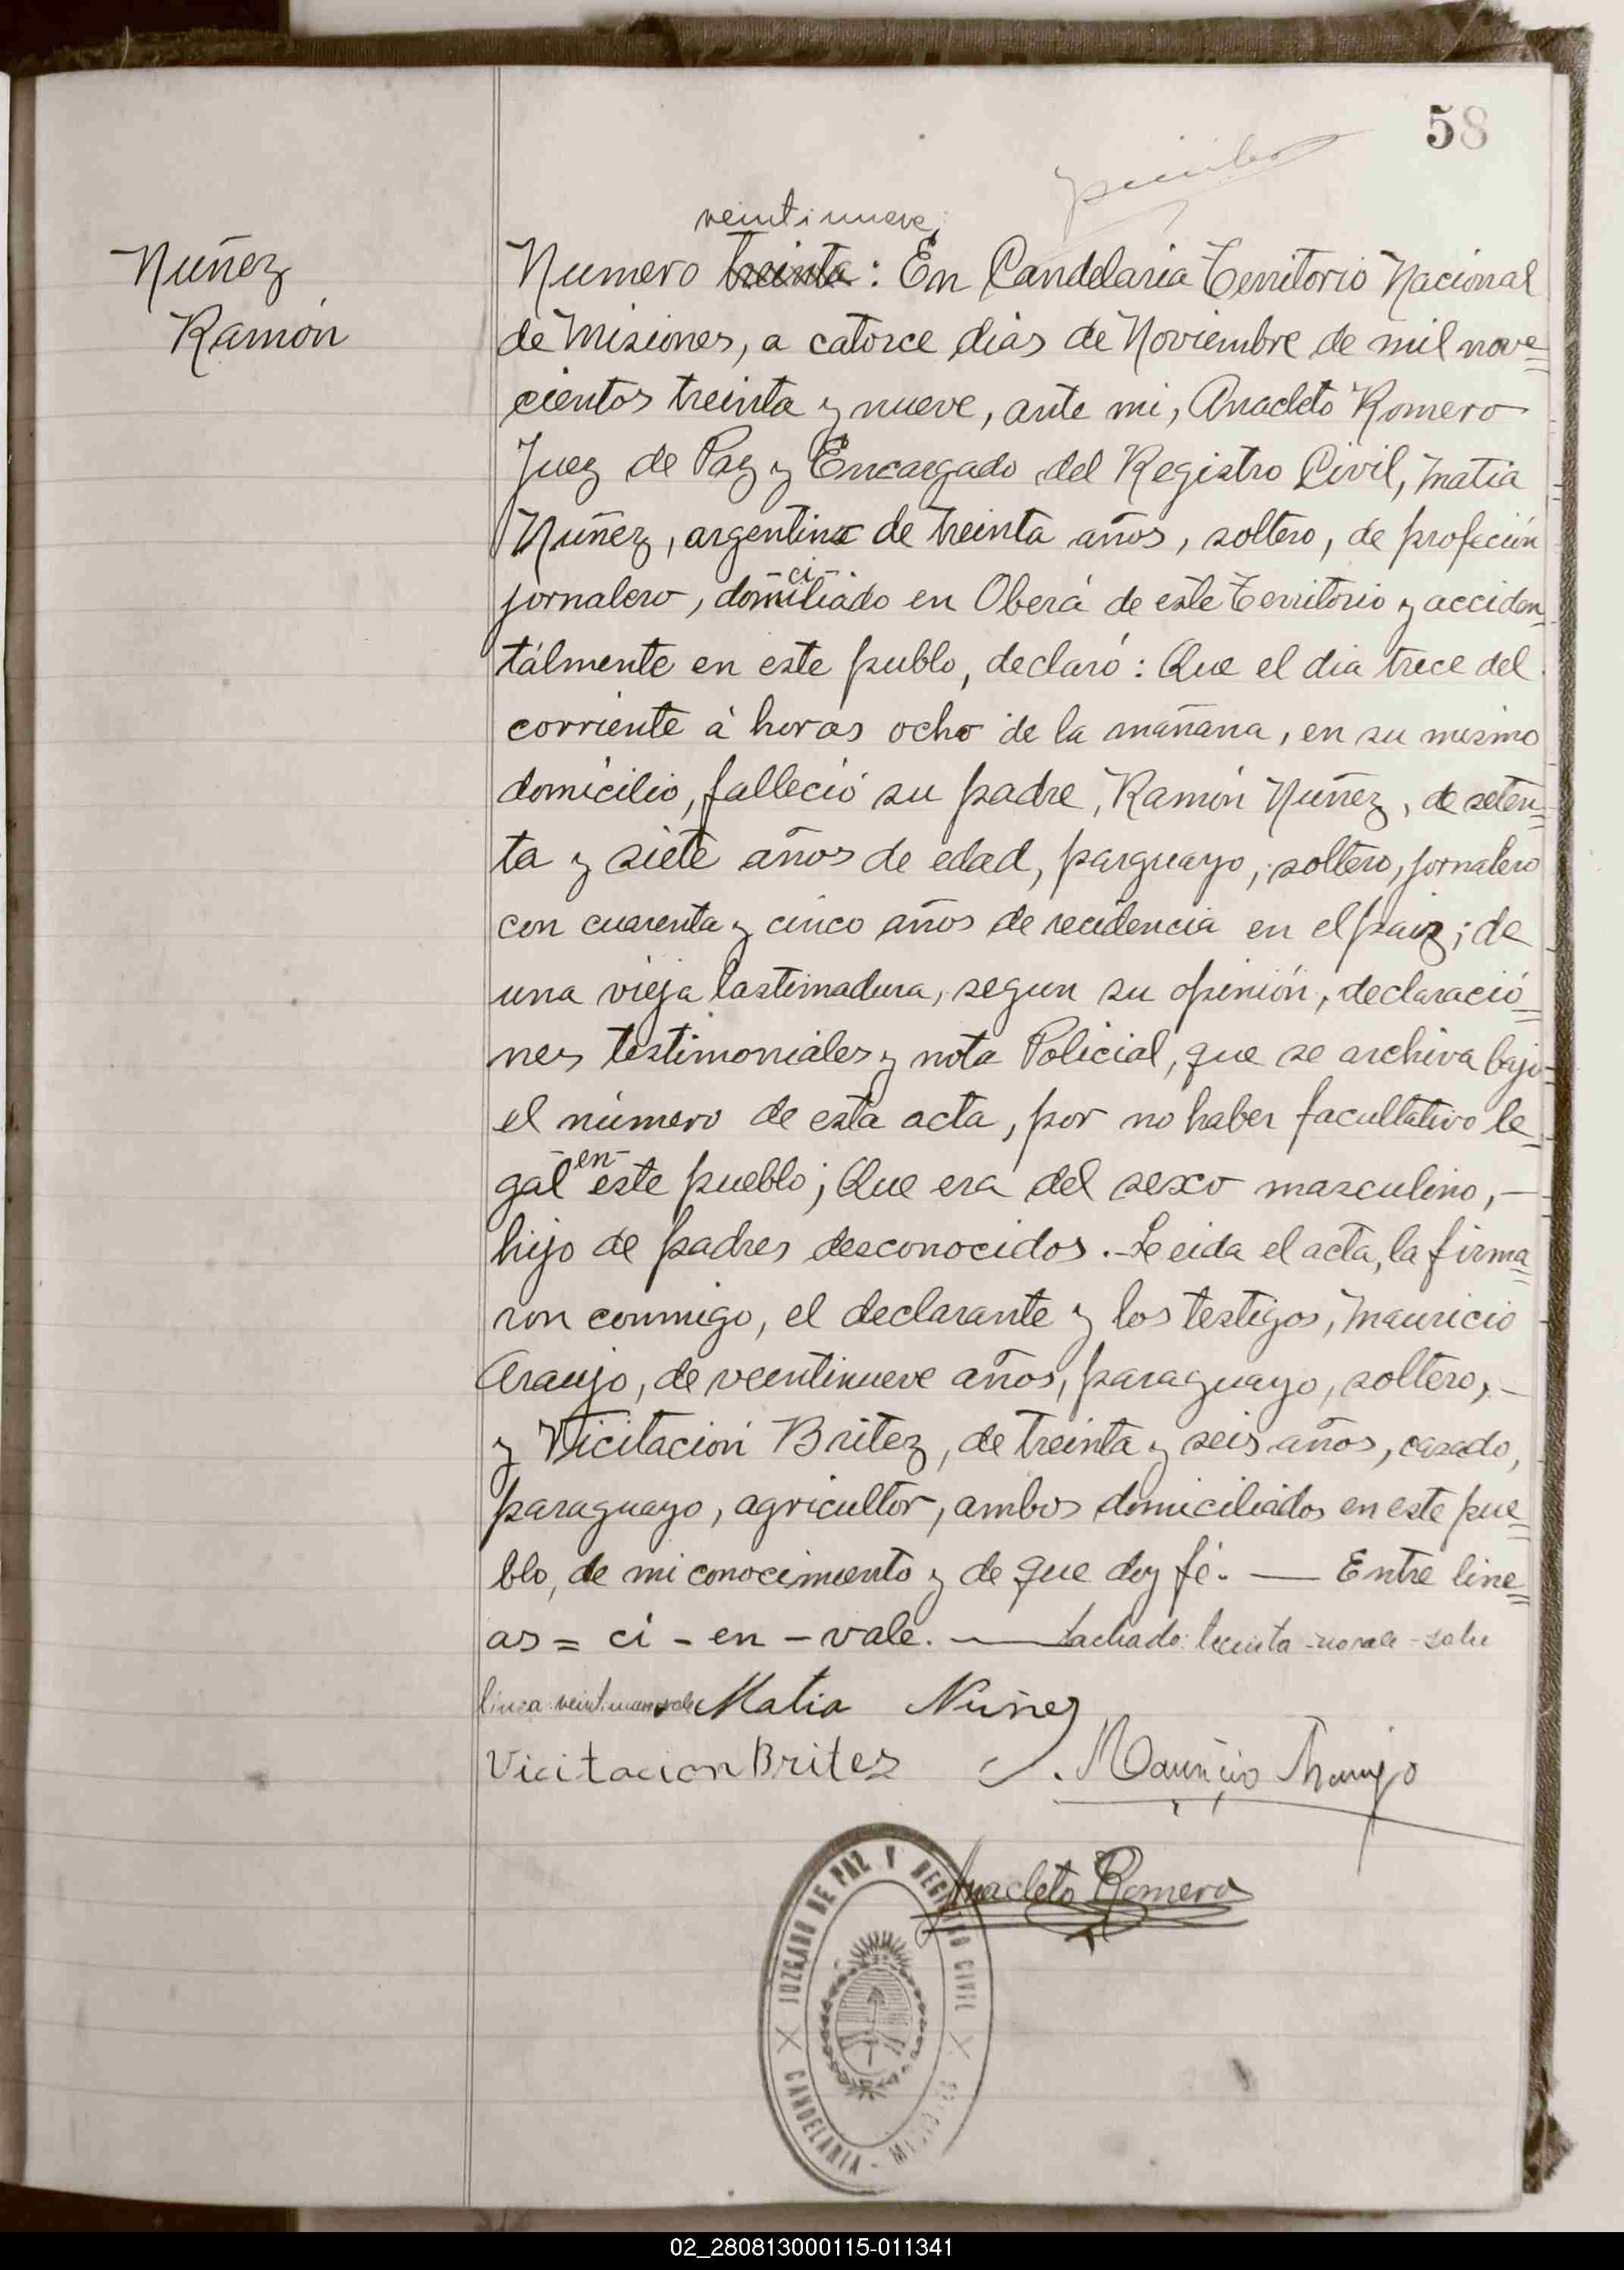 58
veintinueve;
Nuñez
Ramón
Numero treinta: En Candelaria Territorio Nacional
de Misiones, a catorce dias de Noviembre de mil nove=
cientos treinta y nueve, ante mi, Anacleto Romero
Juez de Paz y Encargado del Registro Civil, Matia
Nuñez, argentino de treinta años, soltero, de profeción
jornalero, domiliado en Oberá de este Territorio y acciden=
-ci-
tálmente en este publo, declaró: Que el dia trece del
corriente á horas ocho de la mañana, en su mismo
domicilio, falleció su padre, Ramón Nuñez, de seten=
ta y siete años de edad, parguayo, soltero, jornalero
con cuarenta y cinco años de recidencia en el paiz; de
una vieja lastimadura, segun su opinión, declaració=
nes testimoniales y nota Policial, que se archiva bajo=
el número de esta acta, por no haber facultativo le=
gal -en- este pueblo; Que era del sexo masculino, —
hijo de padres desconocidos. - Leeida el acta, la firma=
ron conmigo, el declarante y los testigos, Mauricio
Araujo, de veintinueve años, paraguayo, soltero, -
y Vicitación Britez, de treinta y seis años, casado,
paraguayo, agricultor, ambos domiciliados en este pue=
blo, de mi conocimiento y de que doy fé. — Entre line=
as = ci - en - vale. — Tachado: treinta - no vale - sobre
linea: veintinueve vale Matia Nuñez
Vicitacion Britez Mauricio Araujo
Anacleto Romero
JUZGADO DE PAZ Y REGISTRO CIVIL
CANDELARIA - MISIONES
02_280813000115-011341